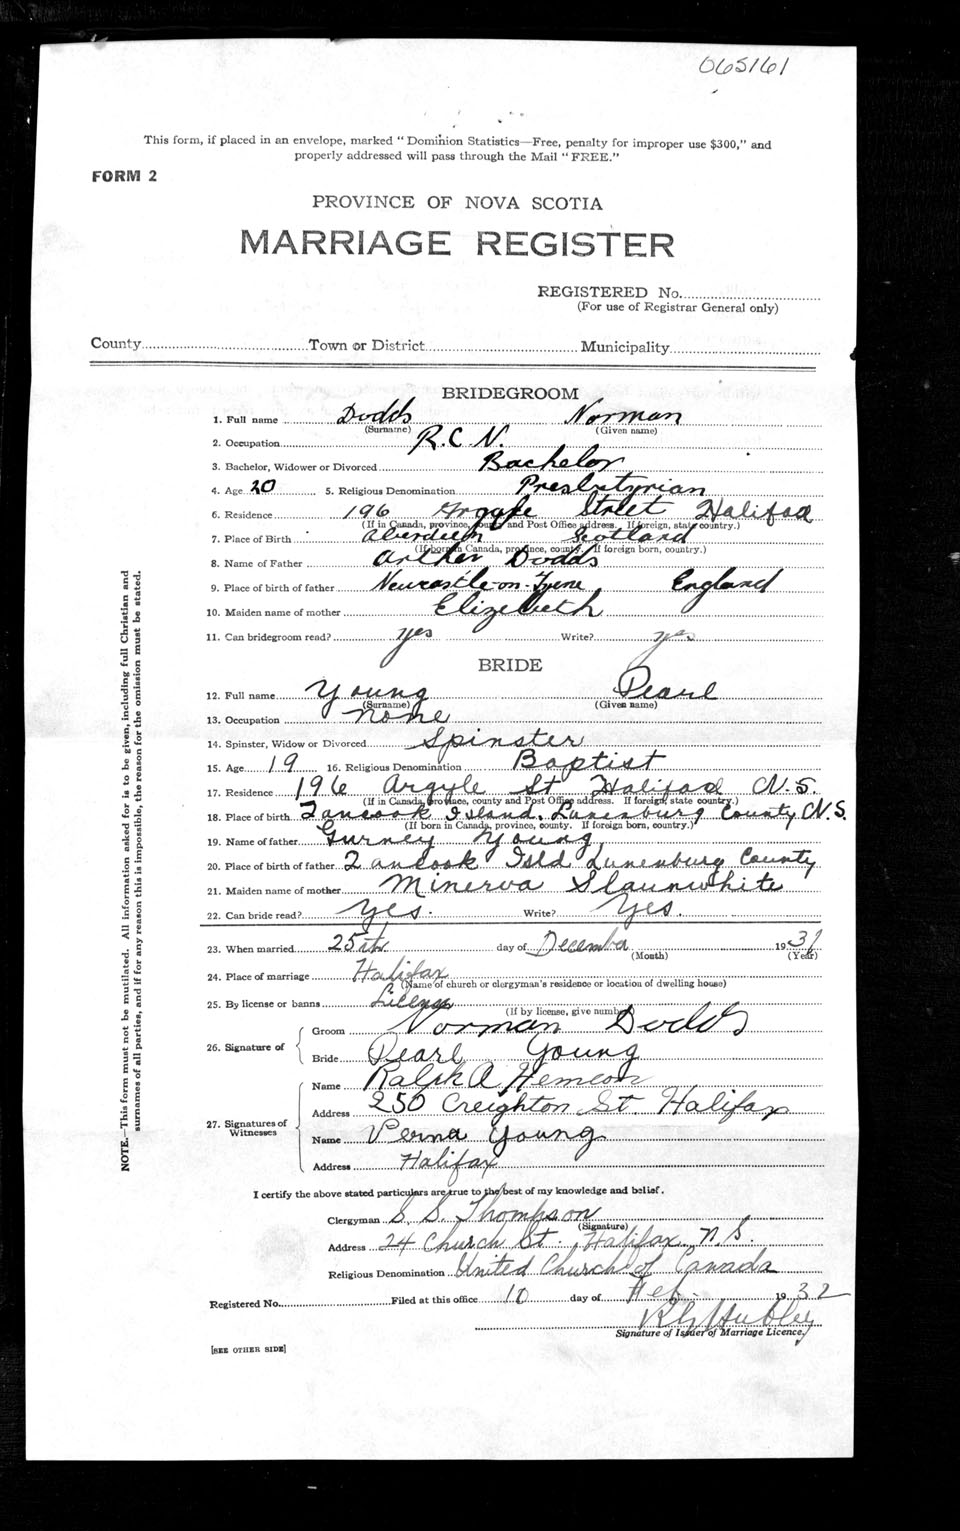 065161
This form, if placed in an envelope, marked "Dominion Statistics—Free, penalty for improper use $300," and
properly addressed will pass through the Mail "FREE."
FORM 2
PROVINCE OF NOVA SCOTIA
MARRIAGE REGISTER
REGISTERED No.
(For use of Registrar General only)
County Town or District Municipality
BRIDEGROOM
1. Full name Dodds Norman
(Surname) (Given name)
2. Occupation R.C.N.
3. Bachelor, Widower or Divorced Bachelor
4. Age 20 5. Religious Denomination Presbutyrian
6. Residence 196 Argyle Street Halifax
(If in Canada, province, county and Post Office address. If foreign, state country.)
7. Place of Birth Aberdeen Scotland
(If born in Canada, province, county. If foreign born, country.)
8. Name of Father Arther Dodds
9. Place of birth of father Newcastle-on-Tyne England
10. Maiden name of mother Elizebeth
11. Can bridegroom read? yes Write? yes
BRIDE
12. Full name Young Pearl
(Surname) (Given name)
13. Occupation none
14. Spinster, Widow or Divorced Spinster
15. Age 19 16. Religious Denomination Baptist
17. Residence 196 Argyle St Halifax N.S.
(If in Canada, province, county and Post Office address. If foreign, state country.)
18. Place of birth Tancook Island. Lunenburg County N.S.
(If born in Canada, province, county. If foreign born, country.)
19. Name of father Gurney Young
20. Place of birth of father Tancook Isld Lunenburg County
21. Maiden name of mother Minerva Slaunwhite
22. Can bride read? Yes. Write? Yes.
23. When married 25th day of December 1931
(Month) (Year)
24. Place of marriage Halifax
(Name of church or clergyman's residence or location of dwelling house)
25. By license or banns License
(If by license, give number)
26. Signature of
Groom Norman Dodds
Bride Pearl Young
27. Signatures of Witnesses
Name Ralph A
Address 250 Creighton St. Halifax
Name Verna Young
Address Halifax
I certify the above stated particulars are true to the best of my knowledge and belief.
Clergyman S. S. Thompson
(Signature)
Address 24 Church St., Halifax, N.S.
Religious Denomination United Church of Canada
Registered No. Filed at this office 10 day of Feb. 1932
Hubley
Signature of Issuer of Marriage Licence.
[SEE OTHER SIDE]
NOTE.—This form must not be mutilated. All information asked for is to be given, including full Christian and
surnames of all parties, and if for any reason this is impossible, the reason for the omission must be stated.